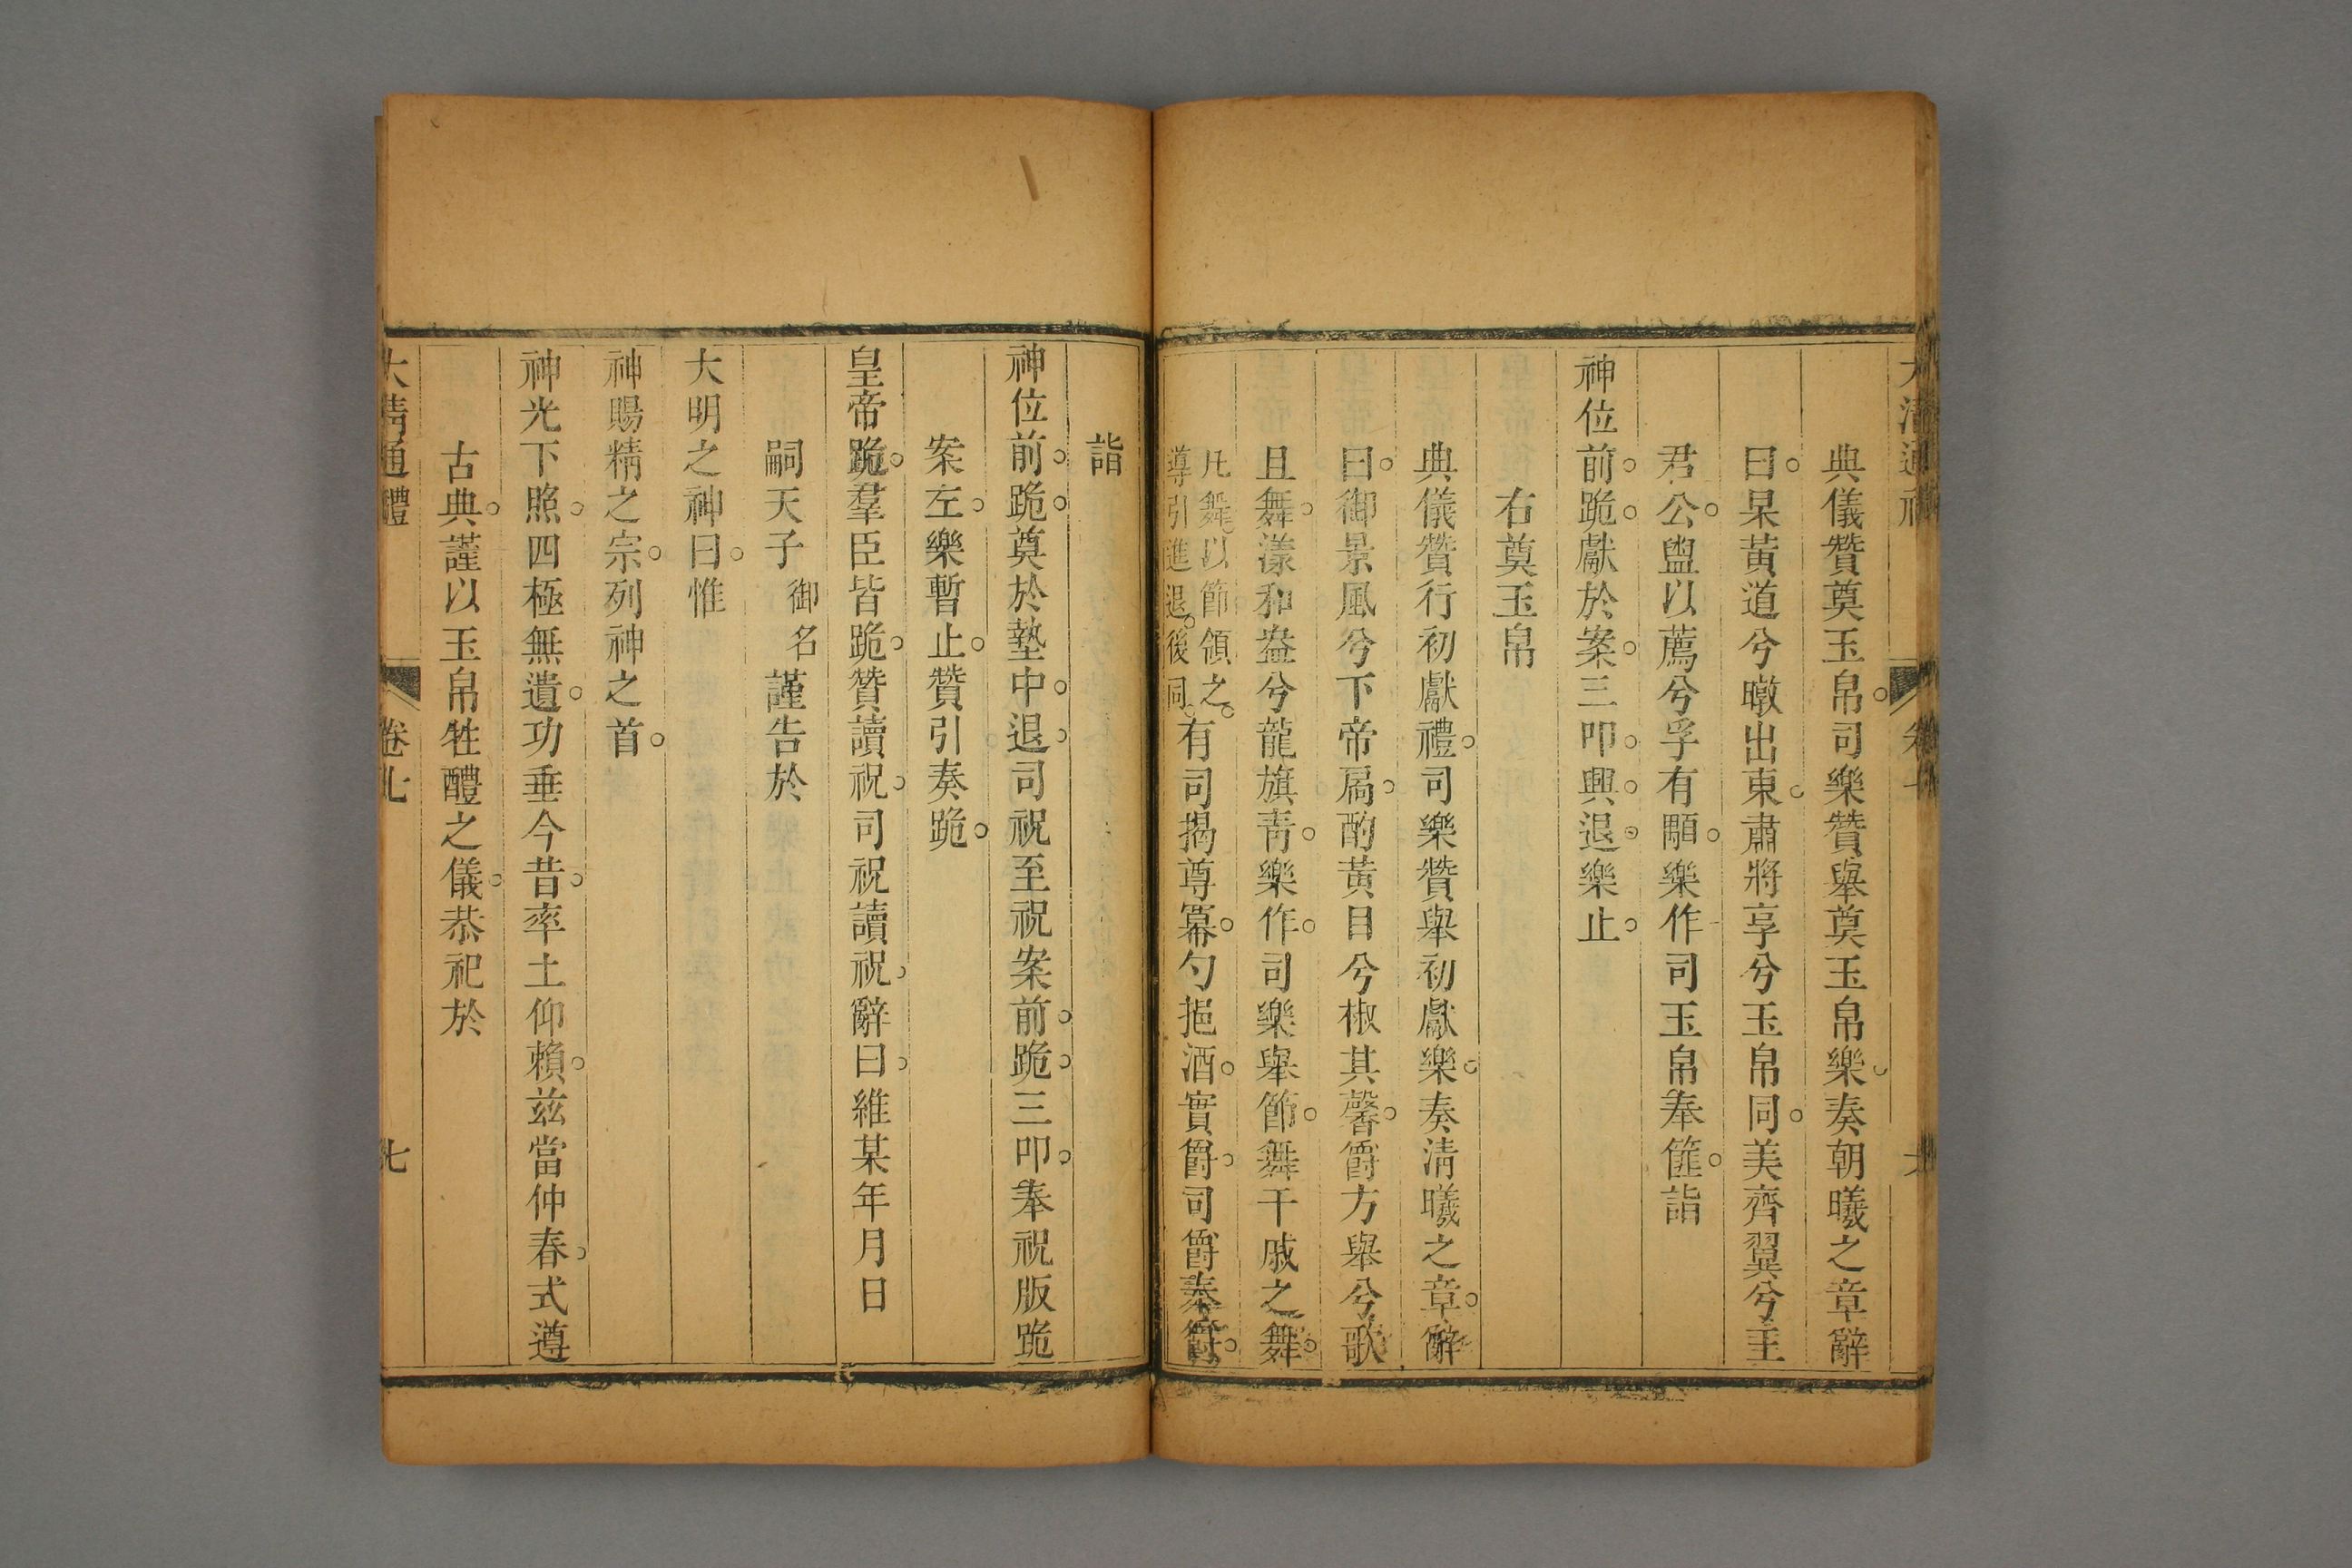 典儀贊奠玉帛。司樂贊舉奠玉帛樂。奏朝曦之章辭
曰。杲黃道兮暾出東。肅將享兮玉帛同。美齊翼兮主
君公。盥以薦兮孚有顒。樂作司玉帛奉篚。詣
神位前。跪。獻於案。三叩。興。退。樂止。
右奠玉帛
典儀贊行初獻禮。司樂贊舉初獻樂。奏清曦之章。辭
曰。御景風兮下帝扃。酌黃目兮椒其馨。爵方舉兮歌
且舞。漾和盎兮龍旗青。樂作。司樂舉節。舞干戚之舞。
凡舞。以節領之。
導引進退。後同。
有司揭尊冪。勺挹酒。實爵。司爵奉爵。
詣
神位前。跪。奠於墊中。退。司祝至祝案前。跪。三叩。奉祝版跪
案左。樂暫止。贊引奏跪。
皇帝跪。羣臣皆跪。贊讀祝。司祝讀祝。辭曰。維某年月日
嗣天子御名謹告於
大明之神曰。惟
神賜精之宗。列神之首。
神光下照。四極無遺。功垂今昔。率土仰賴。茲當仲春。式遵
古典。謹以玉帛牲醴之儀。恭祀於
大清通禮 卷七 七